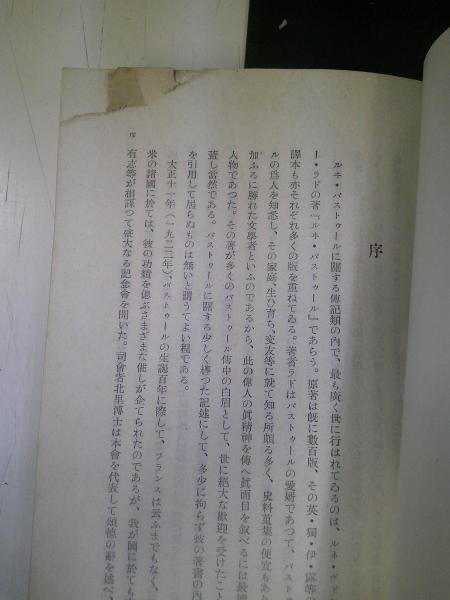 序
ルネ・パストゥールに關する傳記類の內で、最も廣く世に行はれてゐるのは、ルネ・ヴァ
ー・ラドの著『ルネ・パストゥール』であらう。原著は既に數百版、その英・獨・伊・露等の
譯本も亦それぞれ多くの版を重ねてゐる。著者ラドはパストゥールの愛婿であつて、パストゥ
ルの爲人を知悉し、その家庭、生ひ育ち、交友等に就て知る所頗る多く、史料蒐集の便宜もあ
加ふるに勝れた文學者といふのであるから、此の偉人の眞精神を傳へ眞面目を敘べるには最
人物であつた。その著が多くのパストゥール傳中の白眉として、世に絕大な歡迎を受けたこと
蓋し當然である。パストゥールに關する少しく纏つた記述にして、多少に拘らず彼の著書の內
を引用して居らぬものは無いと謂うてよい程である。
大正十一年(一九二二年)、パストゥールの生誕百年に際して、フランスは云ふまでもなく、
米の諸國に於ては、彼の功績を偲ぶさまざまな催しが企てられたのであるが、我が國に於ても
有志等が相謀つて盛大なる記念會を開いた。司會者北里博士は本會を代表して頌德の辭を述べ、
序